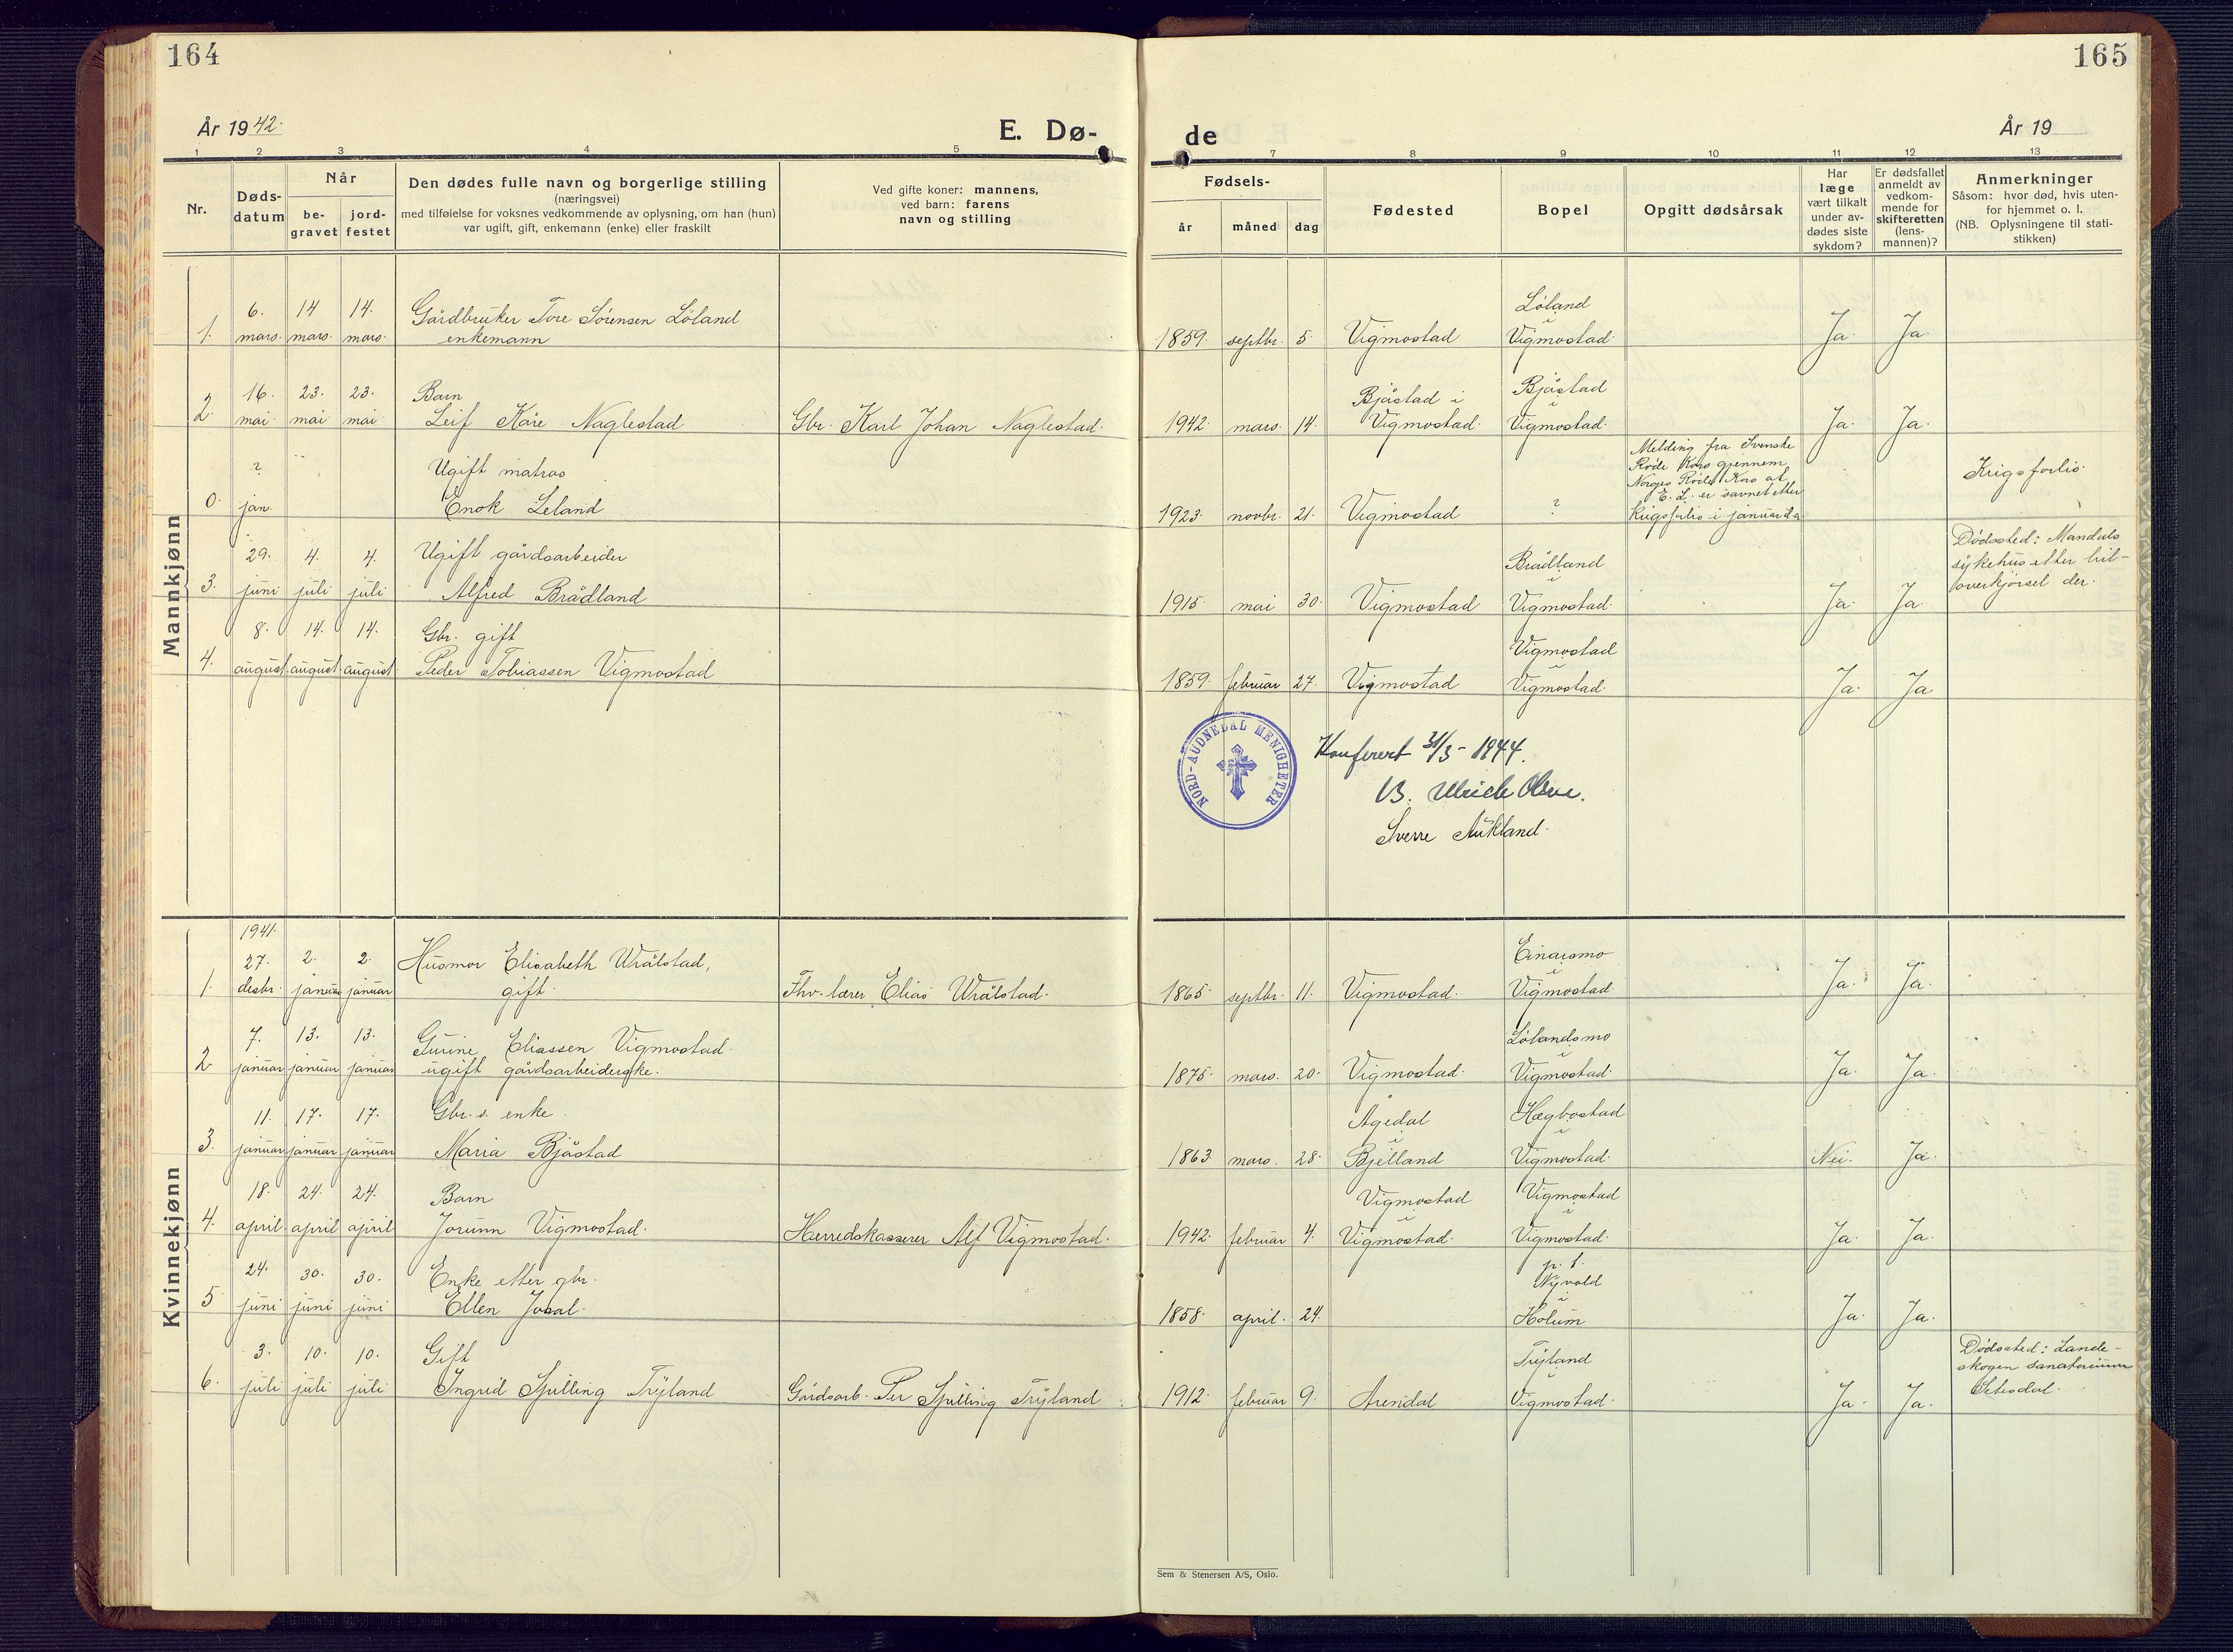 164
165
År 1942.
E. Dø-
de
År 19
1 2 3 4 5
7 8 9 10 11 12 13
Nr.
Døds-
datum
Når
be-
gravet
jord-
festet
Den dødes fulle navn og borgerlige stilling
(næringsvei)
med tilføielse for voksnes vedkommende av oplysning, om han (hun)
var ugift, gift, enkemann (enke) eller fraskilt
Ved gifte koner: mannens,
ved barn: farens
navn og stilling
Fødsels-
år
måned
dag
Fødested
Bopel
Opgitt dødsårsak
Har
læge
vært tilkalt
under av-
dødes siste
sykdom?
Er dødsfallet
anmeldt av
vedkom-
mende for
skifteretten
(lens-
mannen)?
Anmerkninger
Såsom: hvor død, hvis uten-
for hjemmet o. l.
(NB. Oplysningene til stati-
stikken)
Mannkjønn
6. 14 14. Gårdbruker Tore Sørensen Løland
1. mars. mars. mars. enkemann
Løland
i
1859. septbr. 5. Vigmostad Vigmostad. Ja. Ja.
16. 23. 23. Barn
2. mai. mai mai Leif Kåre Naglestad Gbr. Karl Johan Naglestad.
Bjåstad i Bjåstad
i
1942. mars. 14. Vigmostad. Vigmostad. Ja. Ja.
? Ugift matros
0. jan. Enok Leland
Melding fra Svenske
Røde Kors gjennem
Norges Røde Kors at
E. L. er savnet etter
krigsforlis i januar d.a.
Krigsforlis.
1923. novbr. 21. Vigmostad ?
29. 4. 4. Ugift gårdsarbeider
3. juni juli juli Alfred Brådland
Brådland
i
1915 mai 30. Vigmostad Vigmostad. Ja. Ja.
Dødssted: Mandals
sykehus etter bil-
overkjørsel der.
8. 14. 14. Gbr. gift
4. august. august. august. Peder Tobiassen Vigmostad
Vigmostad
i
1859. februar 27. Vigmostad Vigmostad. Ja. Ja.
NORD-AUDNEDAL MENIGHETER
Konferert 31/3 - 1944.
B. Ulrich Olsen.
Sverre Aukland.
Kvinnekjønn
1941.
27. 2. 2. Husmor Elisabeth Wrålstad,
1. desbr. januar januar gift. Fhv. lærer Elias Wrålstad.
Einarsmo
i
1865. septbr. 11. Vigmostad. Vigmostad. Ja. Ja.
7. 13. 13. Gurine Eliassen Vigmostad.
2 januar januar januar ugift gårdsarbeiderske.
Lølandsmo
i
1875. mars. 20. Vigmostad. Vigmostad. Ja. Ja.
11. 17. 17. Gbr.s. enke
3. januar januar januar Maria Bjåstad
Ågedal Hægbostad
i i
1863 mars. 28. Bjelland Vigmostad. Nei. Ja.
18. 24. 24. Barn
4. april. april april Jorunn Vigmostad. Herredskasserer Alf Vigmostad.
Vigmostad Vigmostad
i i
1942. februar 4. Vigmostad. Vigmostad. Ja. Ja.
24. 30. 30. Enke etter gbr.
5 juni juni juni Ellen Josal.
p. t.
Nyvold
i
1858. april. 24. Holum Ja. Ja.
3. 10. 10. Gift
6. juli juli juli Ingrid Spilling Tryland Gårdsarb. Per Spilling Tryland
Tryland
i
1912. februar 9. Arendal Vigmostad. Ja. Ja.
Dødssted: Lands-
skogen sanatorium
Setesdal.
Sem & Stenersen A/S, Oslo.